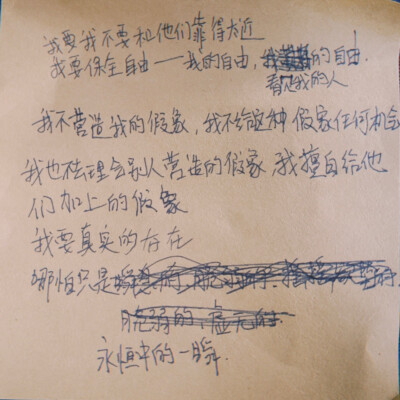 我要我不要和他们靠得太近
我要保全自由——我的自由，的自由.
看见我的人
我不营造我的假象，我不给这种假象任何机会
我也祛理会别人营造的假象，我擅自给他
们加上的假象
我要真实的存在
哪怕只是
脆弱的，虚无的.
永恒中的一瞬.